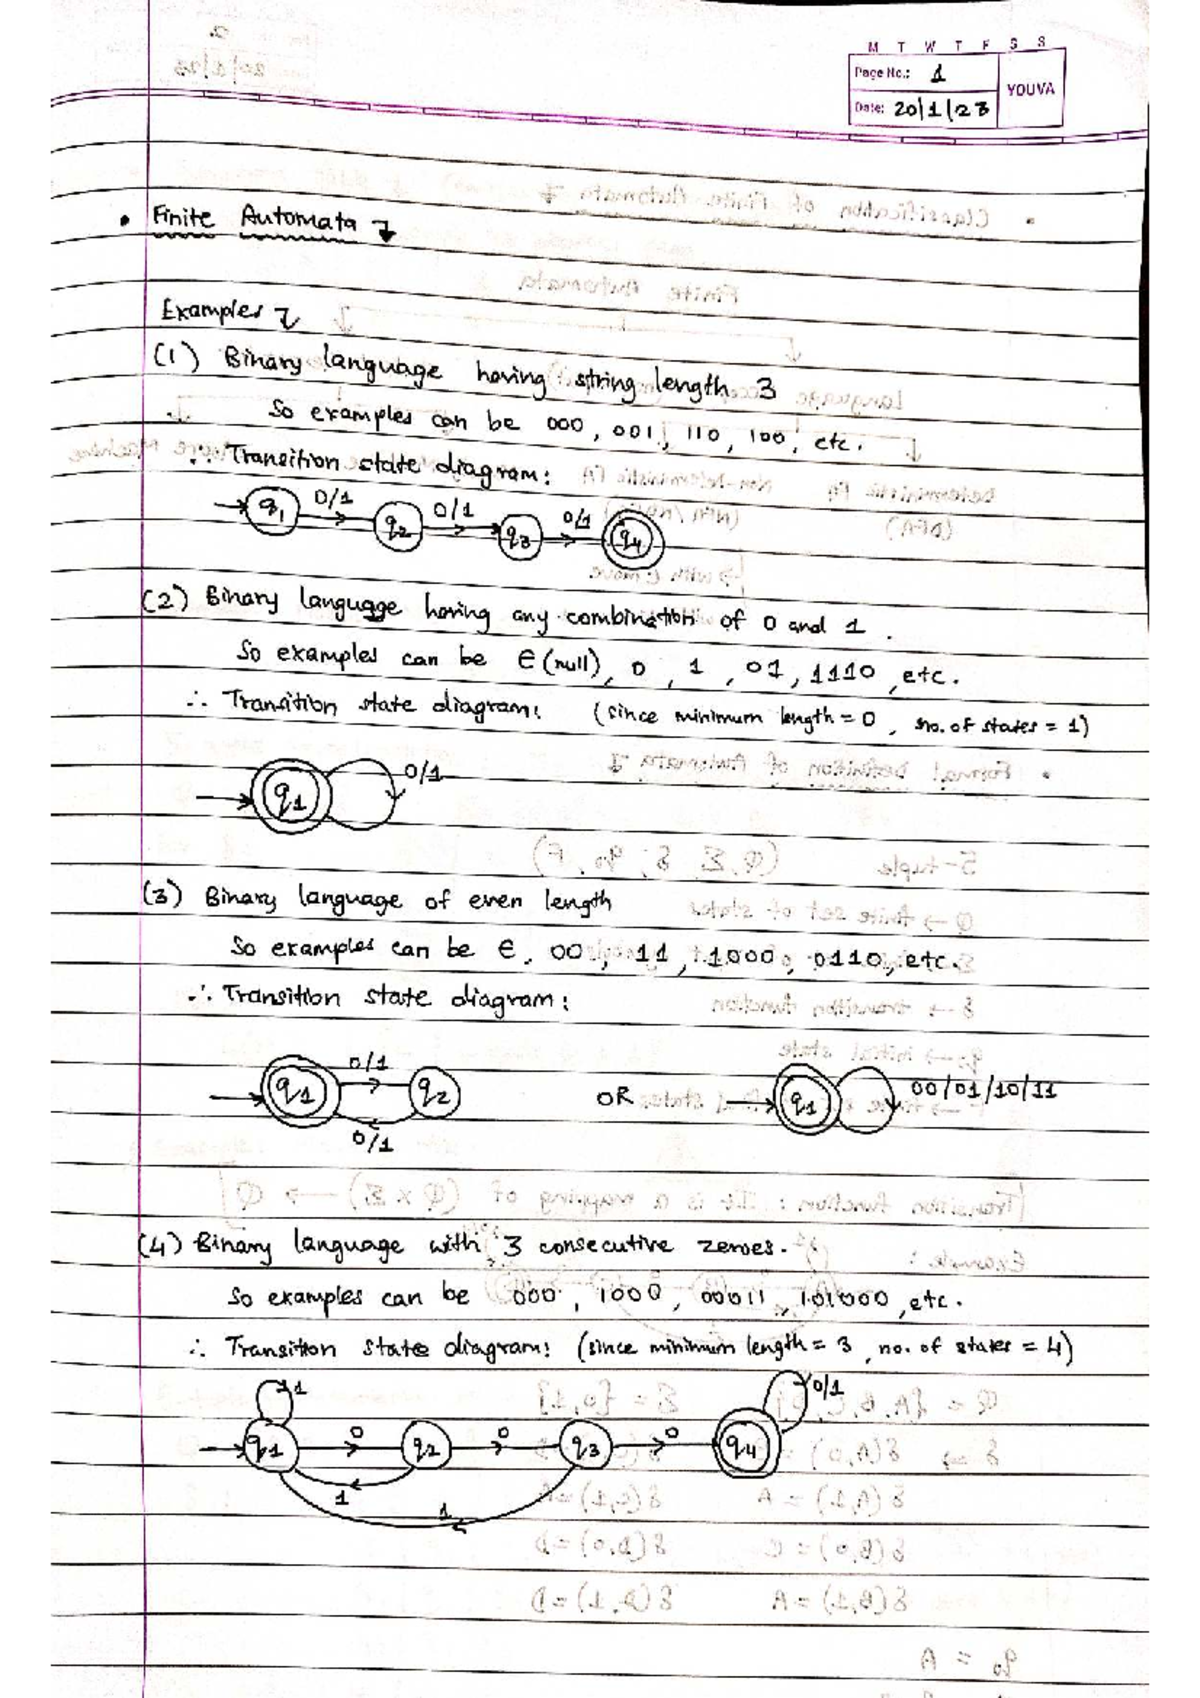 M T W T F S S
Page No.: 1
YOUVA
Date: 20/1/23
• Finite Automata
Examples
(1) Binary language having string length 3
So examples can be 000, 001, 110, 100, etc.
∴ Transition state diagram:
q1 0/1 q2 0/1 q3 0/1 q4
(2) Binary language having any combination of 0 and 1.
So examples can be ∈ (null), 0, 1, 01, 1110, etc.
∴ Transition state diagram: (since minimum length = 0, no. of states = 1)
q1 0/1
(3) Binary language of even length
So examples can be ∈, 00, 11, 1000, 0110, etc.
∴ Transition state diagram:
q1 0/1 q2 0/1 OR q1 00/01/10/11
(4) Binary language with 3 consecutive zeroes.
So examples can be 000, 1000, 00011, 101000, etc.
∴ Transition state diagram: (since minimum length = 3, no. of states = 4)
1 0/1
q1 0 q2 0 q3 0 q4
1 1